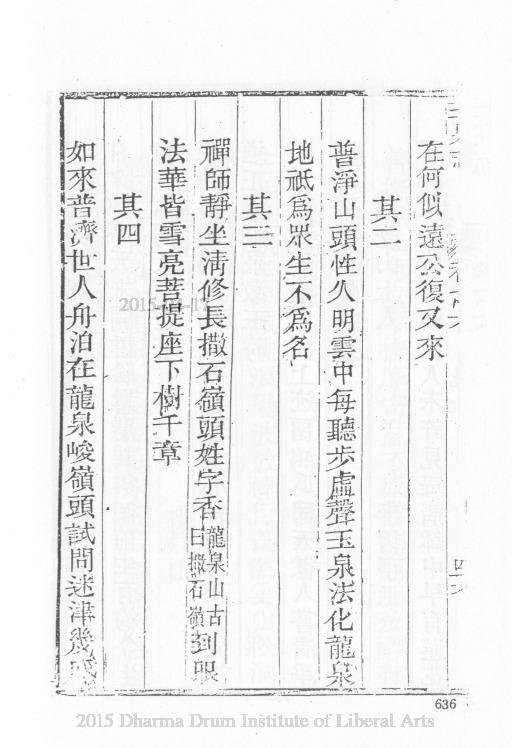 在何似遠公復又來
其二
普淨山頭性久明雲中每聽步虛聲玉泉法化龍泉
地祇爲眾生不爲名
其三
禪師靜坐清修長撒石嶺頭姓字香龍泉山古曰撒石嶺到眼
法華皆雪亮菩提座下樹千章
其四
如來普濟世人舟泊在龍泉峻嶺頭試問迷津幾
2015
636
2015 Dharma Drum Institute of Liberal Arts